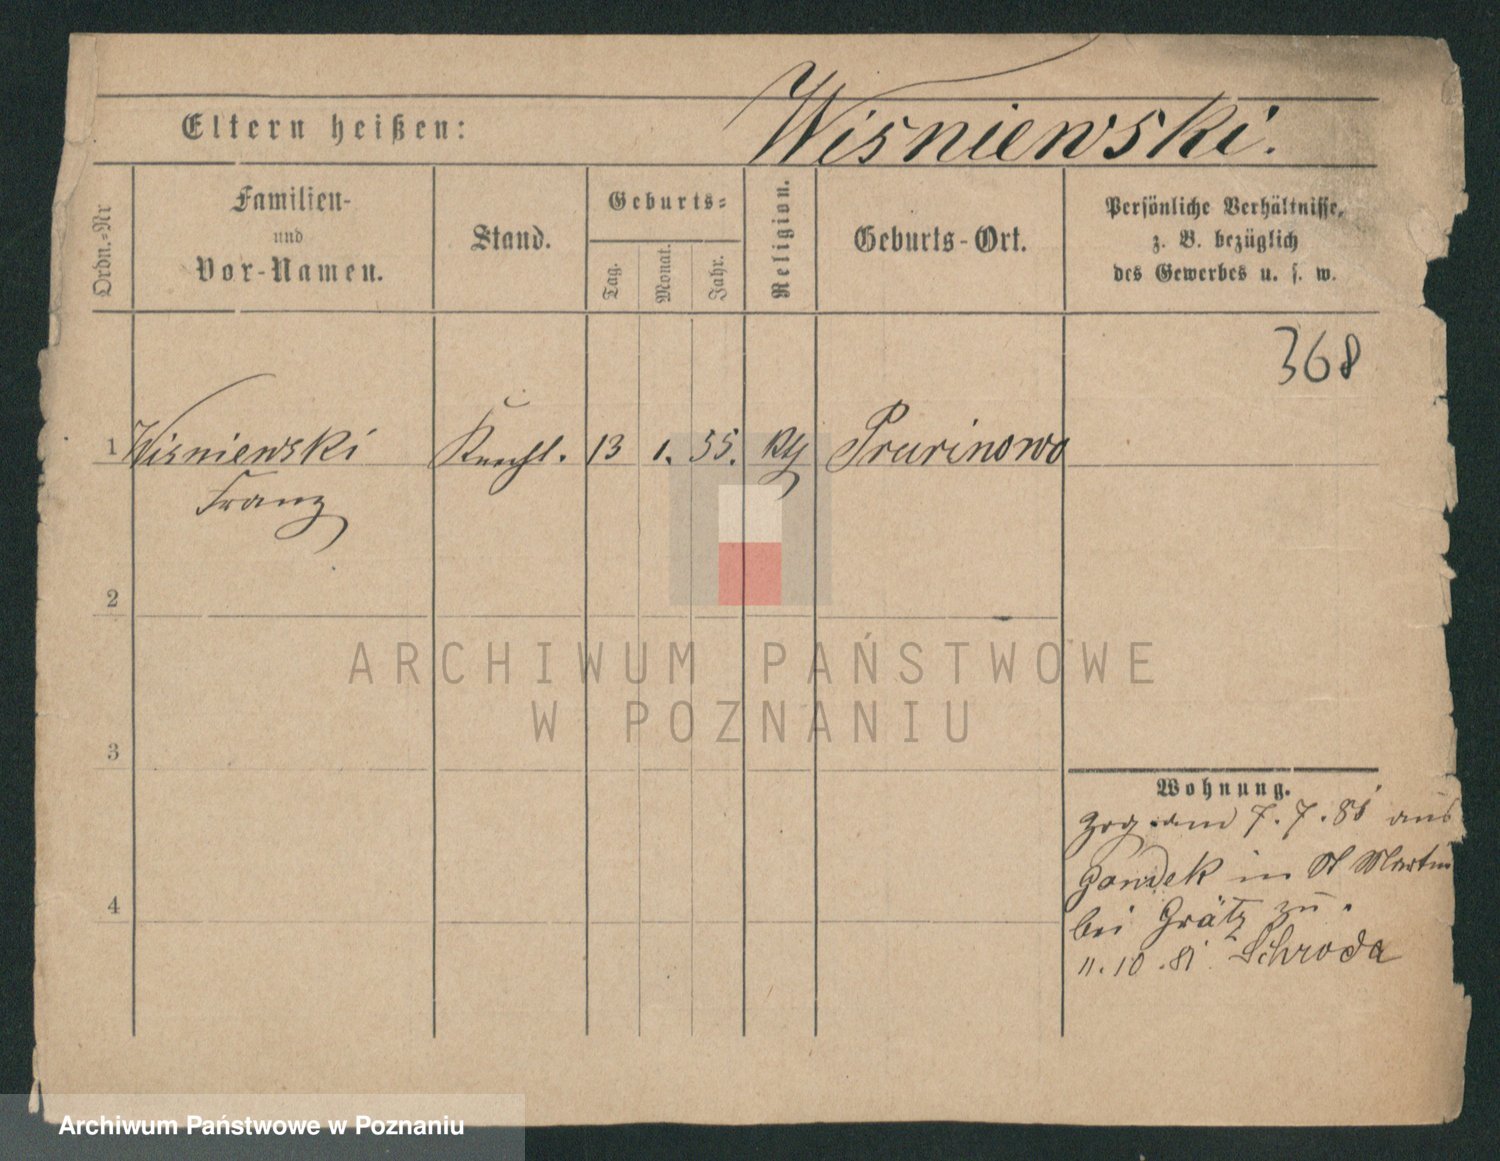 Eltern heißen: Wisniewski.
Ordn.-Nr
Familien-
und
Vor-Namen.
Stand.
Geburts-
Tag.
Monat.
Jahr.
Religion.
Geburts-Ort.
Persönliche Verhältnisse,
z. B. bezüglich
des Gewerbes u. s. w.
368
1 Wisniewski Knecht. 13 1. 55.
Franz
2
3
4
Wohnung.
Zzg. am 7.7.81 aus
in St Martin
bei Grätz zu.
11.10.81 Schroda
ARCHIWUM PAŃSTWOWE
W POZNANIU
Archiwum Państwowe w Poznaniu